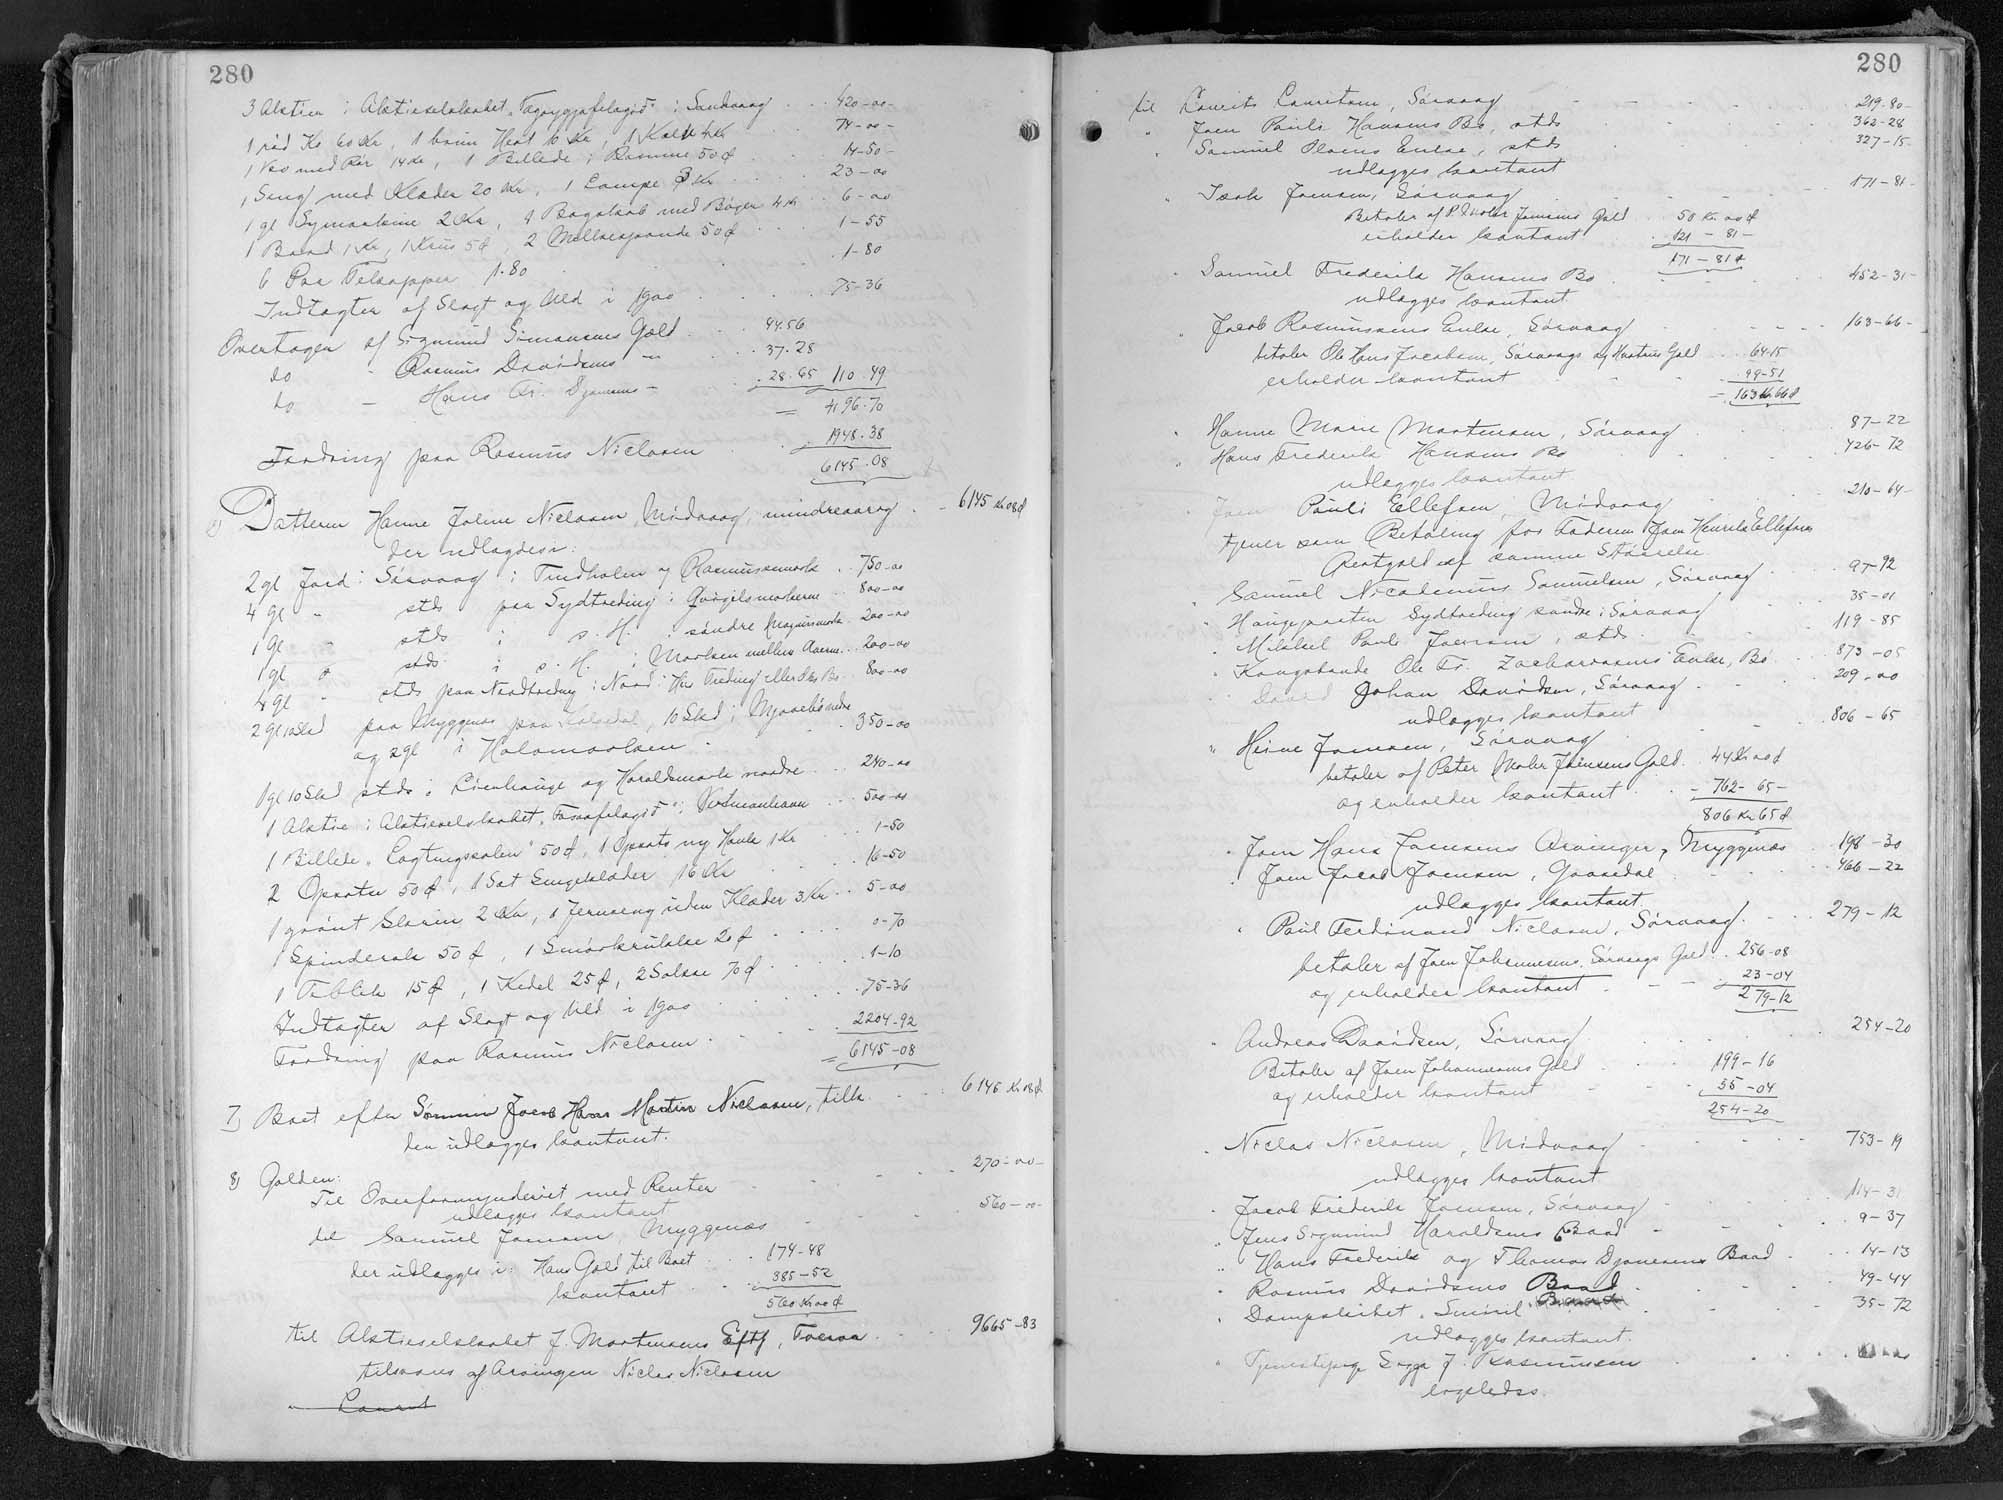 280
3 Aktier i Aktieselskabet " " i Sandvaag . . 420-00-
1 rød Ko 60 Kr, 1 brun Hest 10 Kr, 1 Kalv 4 Kr . 74-00-
1 med Rør 14 Kr, 1 Billede i Ramme 50 Ø . . . 14-50-
1 Seng med Klæder 20 Kr, 1 Lampe 3 Kr . . . . 23-00
1 gl Symaskine 2 Kr, 1 Bogskab med Bøger 4 Kr . . 6-00
1 Baand 1 Kr, 1 Krus 5 Ø, 2 50 Ø . . . 1-55
6 Par 1.80 . . . 1-80
Indtægter af Slagt og Uld i 1900 . . . 75-36
Overtager af Sigmund Simonsens Gæld . . 44.56
do - Rasmus Davidsens - . . 37.28
do - Hans Fr. Djonesens - . 28.65 110.49
= 4196.70
Fordring paa Rasmus Niclasen . . 1948.38
6145.08
6) Datteren Hanne Joline Niclasen, Midvaag, mindreaarig . - 6145 Kr 08 Ø
der udlægges i:
2 gl Jord i Sørvaag i Tindholm og Rasmusmork . . 750-00
4 gl " stds paa Sydtreding i . . 800-00
1 gl " stds i s. H. i søndre Magnusmork . 200-00
1 gl " stds i s. H. i Marken mellem Aaerne . . 200-00
4 gl " stds paa Nordtreding i Nord i Heri Treding eller Bø . 800-00
2 gl 10 Skd paa Myggenæs paa , 10 Skd i
og 2 gl i . . 350-00
1 gl 10 Skd stds i og Haraldsmork nordre . . 240-00
1 Aktie i Aktieselskabet " " i Vestmanhavn . . 500-00
1 Billede "Lagtingssalen" 50 Ø, 1 Opsats ny Hank 1 Kr . . 1-50
2 Opsatse 50 Ø, 1 Sæt Sengeklæder 16 Kr . . 16-50
1 grønt Skrin 2 Kr, 1 Jernseng uden Klæder 3 Kr . . 5-00
1 Spinderok 50 Ø, 1 Smørkrukke 20 Ø . . . 0-70
1 15 Ø, 1 Kedel 25 Ø, 2 70 Ø . . . 1-10
Indtægter af Slagt og Uld i 1900 . . . 75-36
Fordring paa Rasmus Niclasen . . . 2204-92
= 6145-08
7) Boet efter Sønnen Jacob Hans Martin Niclasen, tilk. . . 6145 Kr 08 Ø
den udlægges kontant.
8) Gælden:
Til Overformynderiet med Renter . . . 270-00-
udlægges kontant
til Samuel Joensen, Myggenæs . . . 560-00-
der udlægges i: Hans Gæld til Boet . . 174-48
kontant . . 385-52
560 Kr 00 Ø
til Aktieselskabet J. Mortensens Eftf, Tveraa . . . 9665-83
tilsvares af Arvingen Niclas Niclasen
280
til Laurits Lauritsen, Sørvaag . . . 219-80-
" Joen Pauli Hansens Bo, stds . . . 362-28
" Samuel Olsens Enke, stds . . . 327-15-
udlægges kontant
" Isak Joensen, Sørvaag . . . 171-81-
Betaler af P. Mohr Joensens Gæld . . 50 Kr 00 Ø
erholder kontant . . 121-81-
171-81 Ø
" Samuel Frederik Hansens Bo . . . 452-31-
udlægges kontant
" Jacob Rasmussens Enke, Sørvaag . . . 163-66-
betaler Ole Hans Jacobsen, Sørvaags og Hustrus Gæld . . 64-15
erholder kontant . . 99-51
= 163 Kr 66 Ø
" Hanne Marie Mortensen, Sørvaag . . 87-22
" Hans Frederik Hansens Bo . . 426-72
udlægges kontant
Joen Pauli Ellefsen, Midvaag . . 210-64-
tjener som Betaling for Faderen Joen Henrik Ellefsens
Restgæld af samme Størrelse
" Samuel Nicodemus Samuelsen, Sørvaag . . . 97-92
" Haugeparten Sydtreding søndre i Sørvaag . . 35-01
" Mikkel Pauli Joensen, stds . . . 119-85
" Kongsbonde Ole Fr. Zachariasens Enke, Bø . . 873-05
" David Johan Davidsen, Sørvaag . . . 209-00
udlægges kontant
" Heine Joensen, Sørvaag . . . 806-65
betaler af Peter Mohr Joensens Gæld . 44 Kr 00 Ø
og erholder kontant . . - 762-65-
806 Kr 65 Ø
" Joen Hans Joensens Arvinger, Myggenæs . 198-30
" Joen Jacob Joensen, Gaasedal . . . 466-22
udlægges kontant
" Paul Ferdinand Niclasen, Sørvaag . . . 279-12
betaler af Joen Johannesens, Sørvaags Gæld . . 256-08
og erholder kontant . - - 23-04
279-12
" Andreas Davidsen, Sørvaag . . . 254-20
Betaler af Joen Johannesens Gæld . . 199-16
og erholder kontant . . 55-04
254-20
" Niclas Niclasen, Midvaag . . . 753-19
udlægges kontant
" Jacob Frederik Joensen, Sørvaag . . . 114-31
" Jens Sigmund Haraldsens Baad . . . 9-37
" Hans Frederik og Thomas Djonesens Baad . . . 14-13
" Rasmus Davidsens Baad . . . 49-44
" Dampskibet "Smiril" . . . 35-72
udlægges kontant.
" Tjenestepige J. Rasmussen . . .
ligeledes.